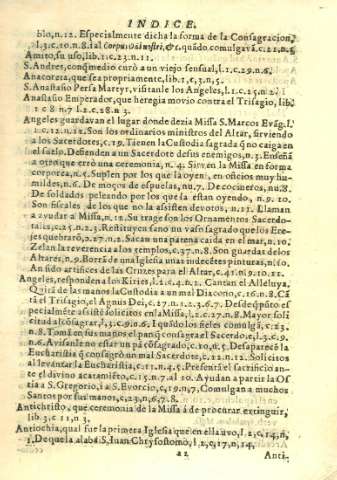 INDICE.
blo, n. 12. Especialmente dicha la forma de la Consagracion,
l. 3. c. 10. n. 8. i al Corpus Dñi nostri, &c. quãdo comulgavã. c. 22. n. 5
Amito, su uso, lib. 1. c. 23. n. 11.
S. Andres, con q̃ medio curò a un viejo sensual, l. 1. c. 29. n. 6.
Anacoreta, que sea propriamente, lib. 1. c, 3, n, 5.
S. Anastasio Persa Martyr, visitanle los Angeles, l. 1. c. 25. n. 2.
Anastasio Emperador, que heregia movio contra el Trisagio, lib.
1 c 8 n 7 l. 2. c. 28. n 3.
Angeles guardavan el lugar donde dezia Missa S. Marcos Evãg. l.
1. c. 12. n. 12. Son los ordinarios ministros del Altar, sirviendo
a los Sacerdotes, c. 19. Tienen la Custodia sagrada q̃ no caiga en
el suelo. Defienden a un Sacerdote de sus enemigos, n. 3. Enseñã
a otro que errò una ceremonia, n. 4. Sirvẽ en la Missa en forma
corporea, n. 5. Suplen por los que la oyen, en oficios muy hu-
mildes, n. 6. De moços de espuelas, nu. 7. De cocineros, nu. 8.
De soldados peleando por los que la estan oyendo, n. 9. 10.
Son fiscales de los que no la assisten devotos, n. 11. Llaman
a ayudar a Missa, n. 12. Su trage son los Ornamentos Sacerdo-
tales, c. 25. n. 23. Restituyen sano un vaso sagrado que los Ere-
jes quebrarõ, n. 27. n. 2. Sacan una patena caida en el mar, n. 10.
Zelan la reverencia a los templos, c. 37. n. 8. Son guardas de los
Altares, n. 9. Borrã de una Iglesia unas indecẽtes pinturas, n. 60.
An sido artifices de las Cruzes para el Altar, c. 41. n. 9. 10. 11.
Angeles, responden a los Kiries, l. 2. c. 4. n. 2. Cantan el Alleluya.
Quitã de las manos la Custodia a un mal Diacono, c. 16. n. 8. Cã
tã el Trisagio, el Agnus Dei, c. 27. n. 1. 2. 3. 6. 7. Desde q̃ puso es
pecialmẽte assistẽ solicitos en la Missa, l. 2. c. 27. n. 8. Mayor soli
citud al cõsagrar, l. 3. c. 9. n. 6. I quãdo los fieles comulgã, c. 23.
n. 8. Tomã en sus manos el pan q̃ consagra el Sacerdote, l. 3. c. 9.
n. 6. Avisanle no estar un pã cõsagrado, c. 10. n. 5. Desaparecẽ la
Eucharistia q̃ consagrò un mal Sacerdote, c. 12. n. 12. Solicitos
al levantar la Eucharistia, c. 11. n. 4. 5. Presentã el sacrificio an-
te el divino acatamiẽto, c. 15. n. 7. al 10. Ayudan a partir la Os
tia a S. Gregorio, i a S. Evorcio, c. 19, n, 7, Comulgan a muchos
Santos por sus manos, c, 23, n, 6, 7. 8.
Antichristo, que ceremonia de la Missa â de procurar extinguir,
lib 3, c 11, n 3,
Antiochia, qual fue la primera Iglesia que en ella uvo, l, 2, c, 14, n,
1, De que la alaba S. Juan Chrysostomo, l, 2, c, 17, n, 14,
a 2
Anti-